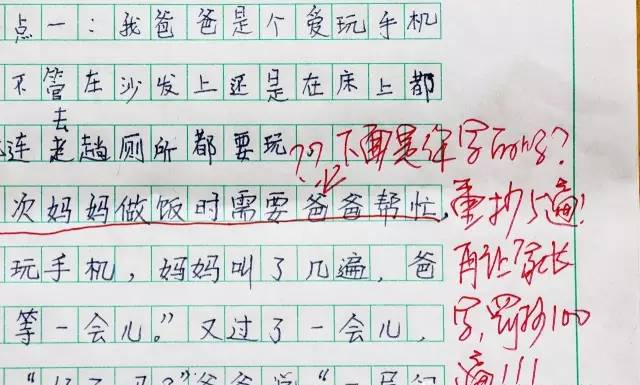 点一：我爸爸是个爱玩手机
不管在沙发上还是在床上都
连去趟厕所都要玩
次妈妈做饭时需要爸爸帮忙，
玩手机，妈妈叫了几遍，爸
等一会儿。”又过了一会儿，
??下面是
字
重抄5遍!
再让家长
字,罚抄100
遍!!!